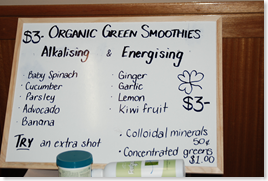 $3- ORGANIC GREEN SMOOTHIES
Alkalising & Energising
· Baby Spinach
· Cucumber
· Parsley
· Avocado
· Banana
· Ginger
· Garlic
· Lemon
· Kiwi fruit
$3-
TRY an extra shot
· Colloidal minerals
50¢
· Concentrated greens
$1.00